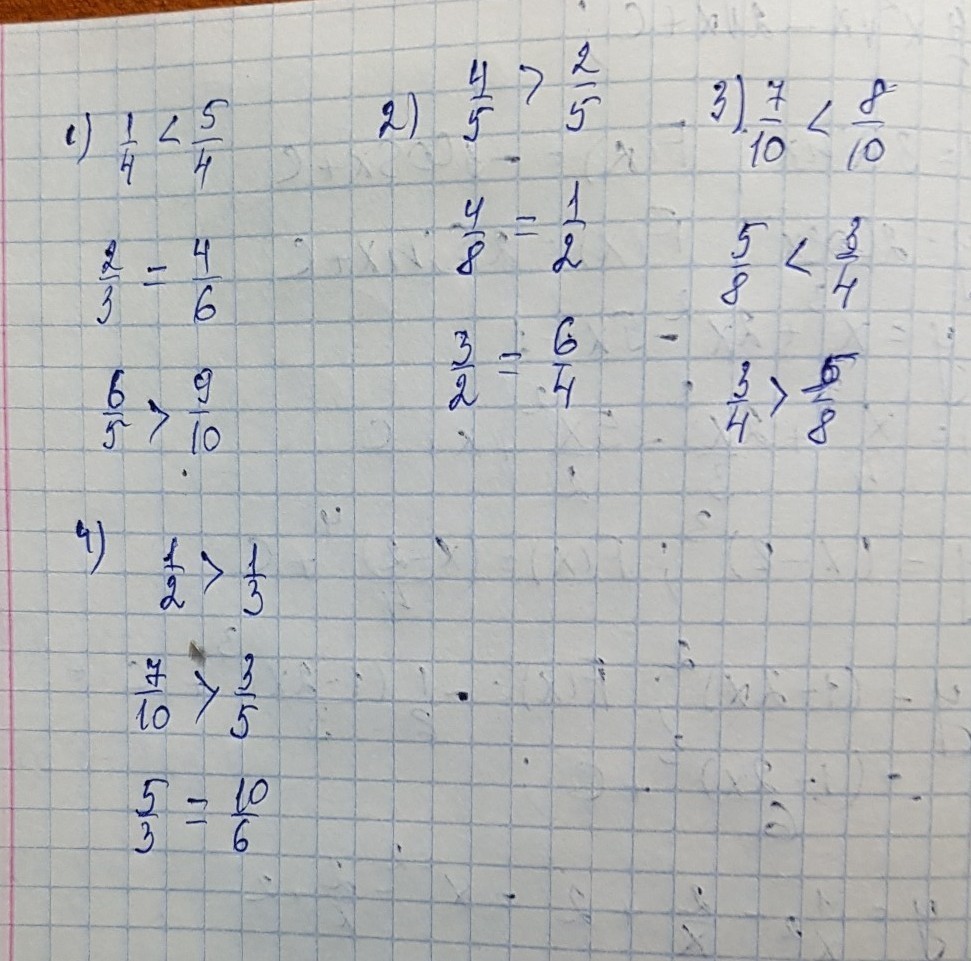 1) 1/4 < 5/4
2/3 = 4/6
6/5 > 9/10
2) 4/5 > 2/5
4/8 = 1/2
3/2 = 6/4
3) 7/10 < 8/10
5/8 < 3/4
3/4 > 5/8
4)
1/2 > 1/3
7/10 > 3/5
5/3 = 10/6